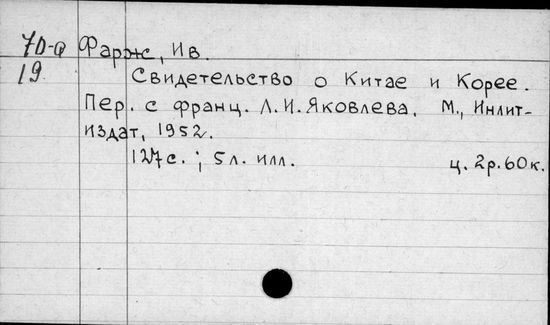 7D-а Фарж, Ив.
19 Свидетельство о Китае и Корее.
Пер. с франц. Л.И.Яковлева. М., Инлит-
издат, 1952.
127с.; 5л. илл. ц. 2р.60к.